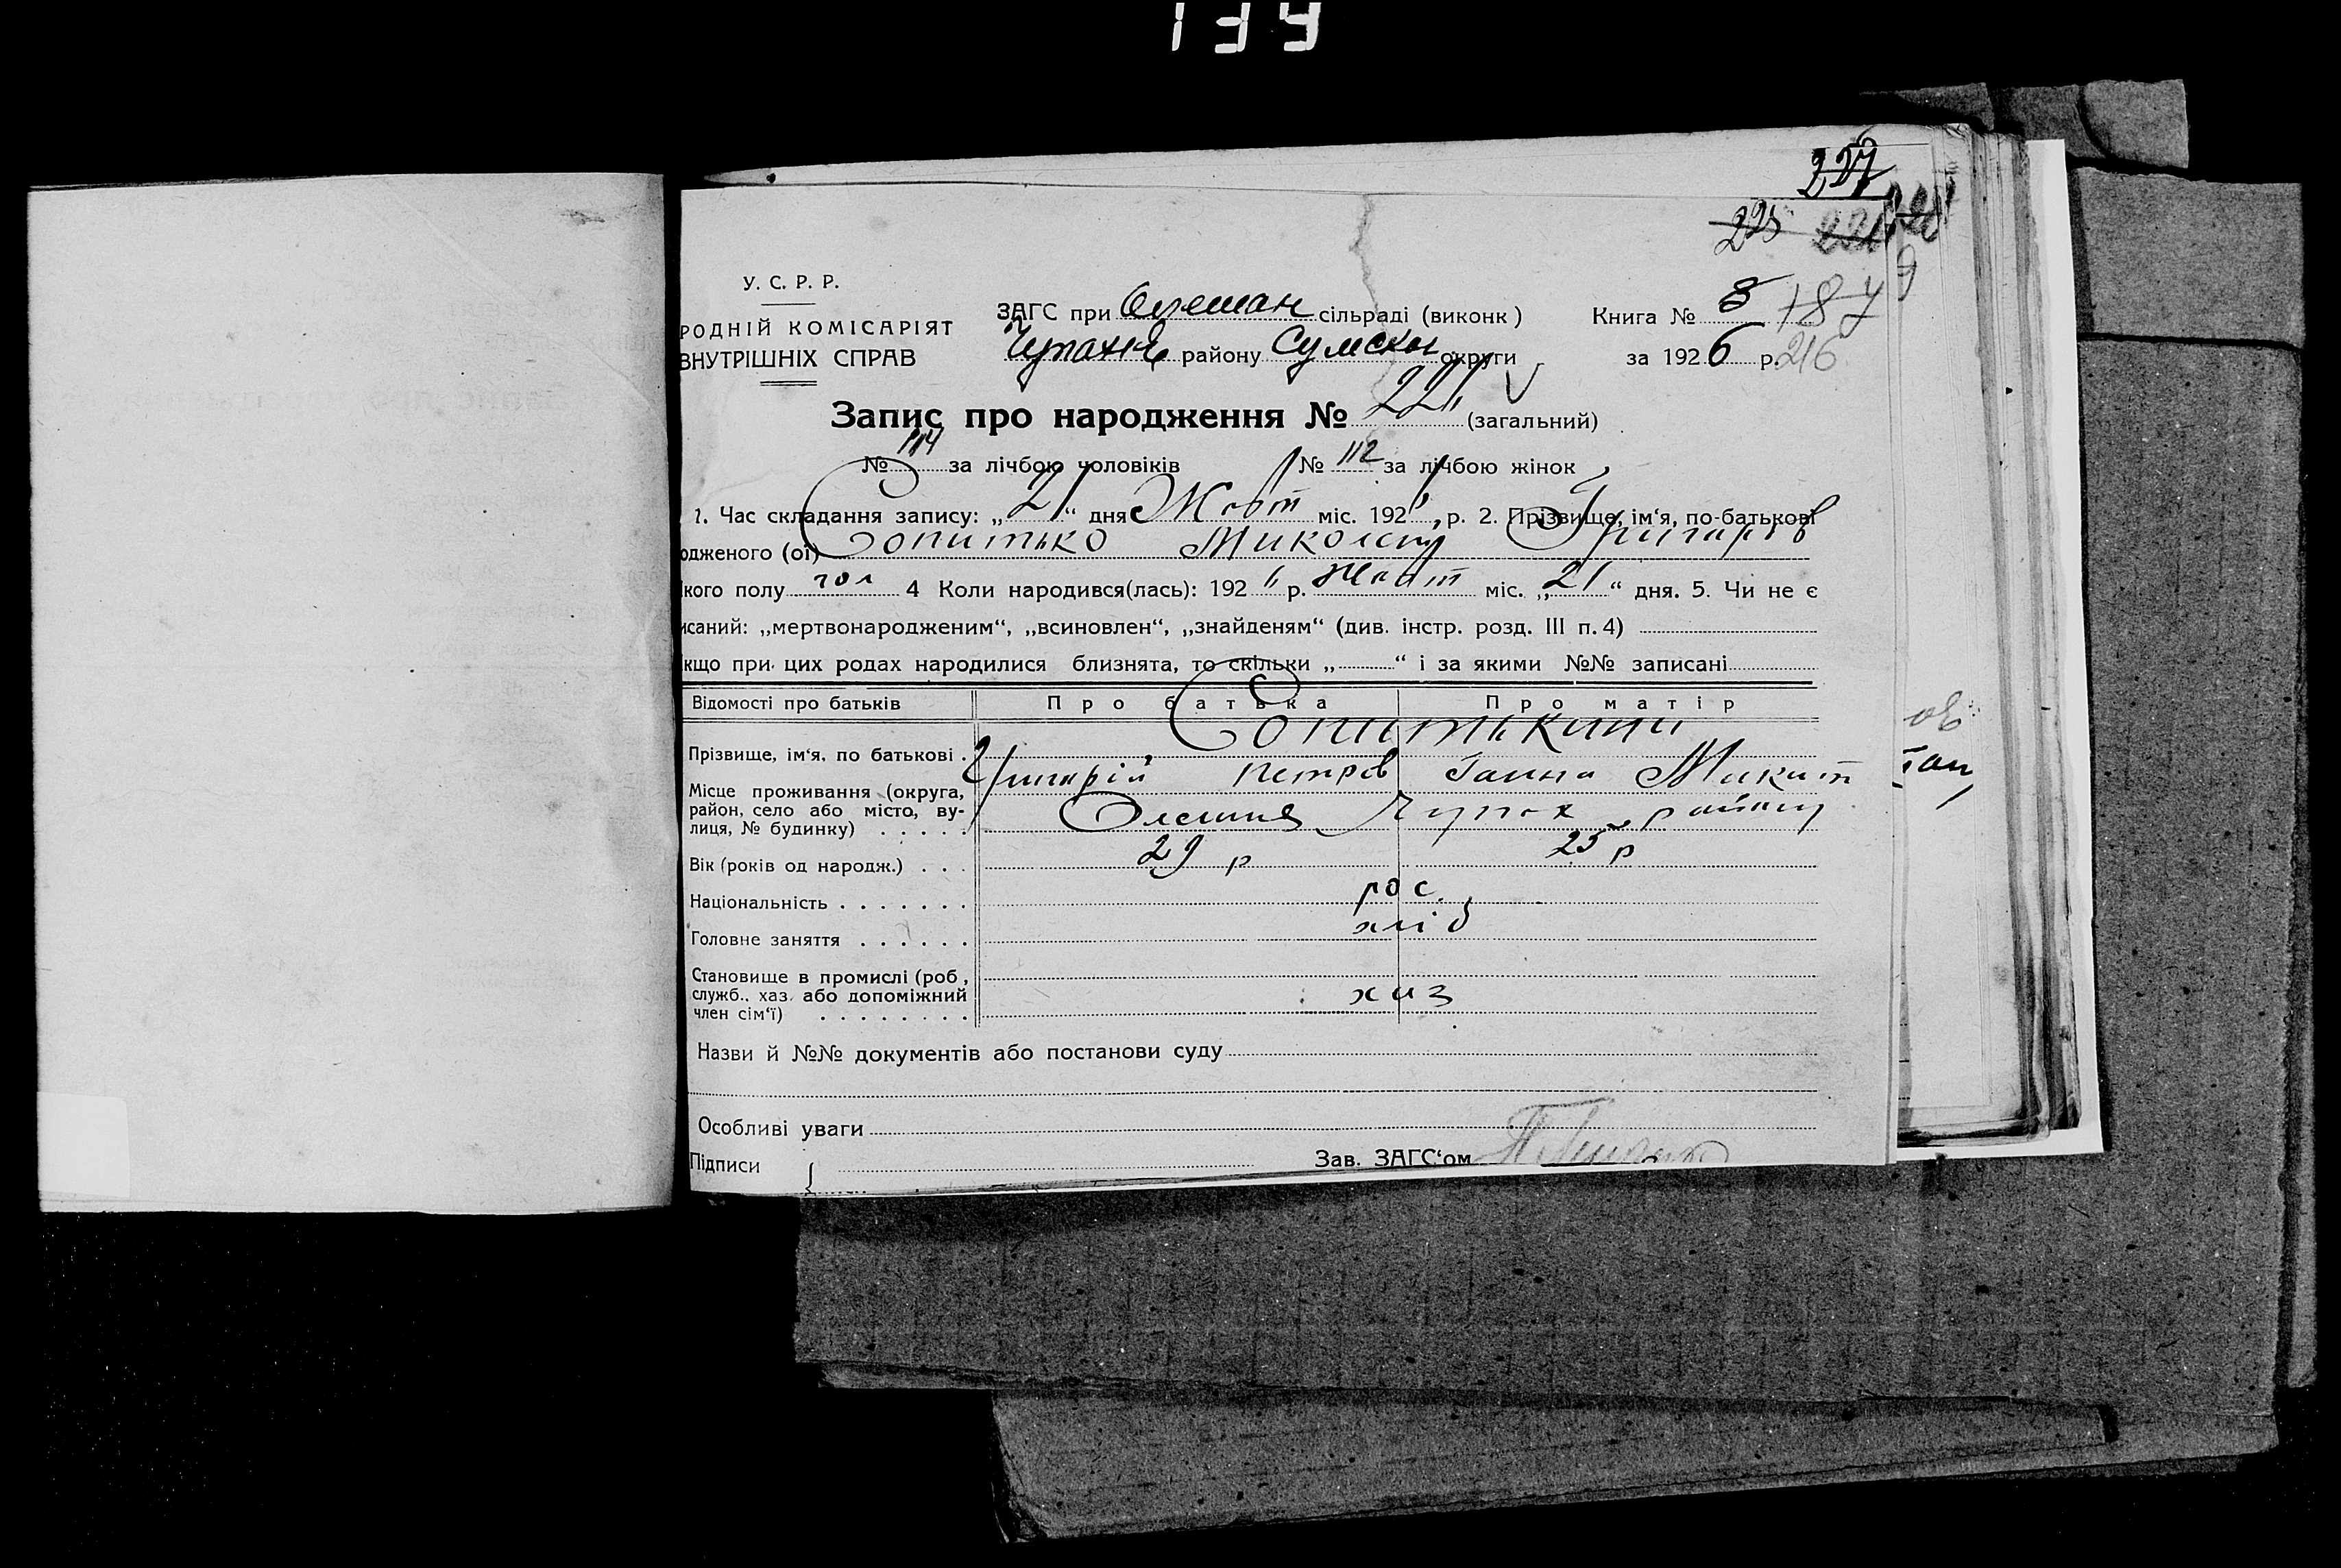 139
227
225 221
У. С. Р. Р.
РОДНІЙ КОМІСАРІЯТ
ВНУТРІШНІХ СПРАВ
ЗАГС при Олешан сільраді (виконк)
Чупахів району Сумскої округи
Книга № 3 187
за 1926 р. 216
Запис про народження № 226 (загальний)
№ 114 за лічбою чоловіків № 112 за лічбою жінок
1. Час складання запису: „21“ дня Жовт міс. 1926 р. 2. Прізвище, ім‘я, по-батькові
одженого (ої) Сопитько Григоров
кого полу чол 4 Коли народився(лась): 1926 р. Жовт міс. „21“ дня. 5. Чи не є
исаний: „мертвонародженим“, „всиновлен“, „знайденям“ (див. інстр. розд. III п. 4)
кщо при цих родах народилися близнята, то скільки „ “ і за якими №№ записані
Відомості про батьків Про батька Про матір
Сопитькини
Прізвище, ім‘я, по батькові .
Григорій Петров Ганна Микит
Місце проживання (округа,
район, село або місто, ву-
лиця, № будинку) . . . . .
Олешня Чупах району
Вік (років од народж.) . . . 29 р 25 р
Національність . . . . . . . рос.
Головне заняття . . . . . . хліб
Становище в промислі (роб,
служб., хаз. або допоміжний
член сім‘ї) . . . . . . . . хаз
Назви й №№ документів або постанови суду
Особливі уваги
Підписи { Зав. ЗАГС‘ом